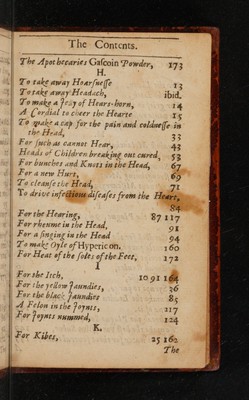 The Contents.
The Apothecaries Gascoin Powder, 173
H.
To take away Hoarsnesse 13
To take away Headach, ibid.
To make a Jely of Hearts-horn, 14
A Cordial to cheer the Hearte 15
To make a cap for the pain and coldnesse in
the Head, 33
For such as cannot Hear, 43
Heads of Children breaking out cured, 53
For bunches and Knots in the Head, 67
For a new Hurt, 69
To cleanse the Head, 71
To drive infectious diseases from the Heart,
84
For the Hearing, 87 117
For rheume in the Head, 91
For a singing in the Head 94
To make Oyle of Hypericon. 160
For Heat of the soles of the Feet, 172
I
For the Itch, 10 91 164
For the yellow Jaundies, 36
For the black Jaundies 85
A Felon in the Joynts, 117
For Joynts nummed, 124
K.
For Kibes, 25 162
The